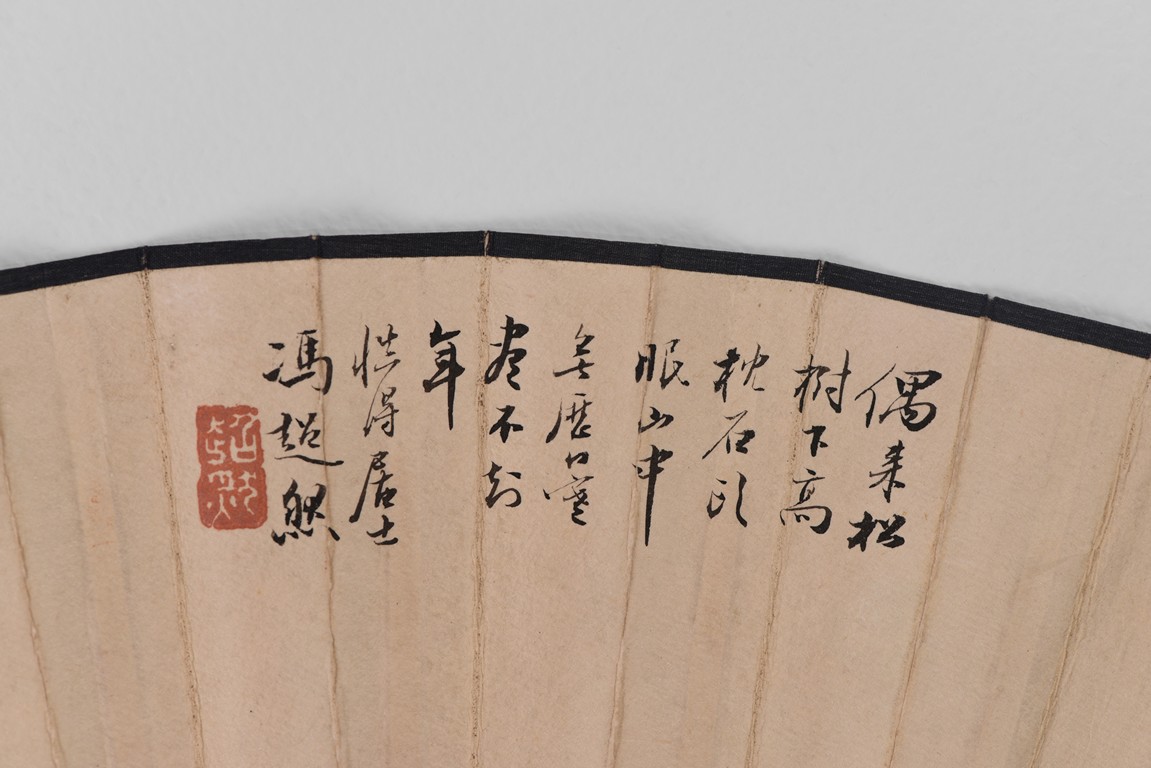 偶来松
樹下高
枕石頭
眠山中
無歷日寒
盡不知
年
慥得居士
馮超然
超然